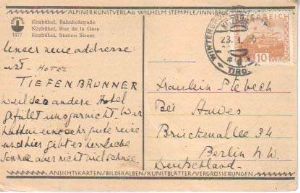 ALPINER KUNSTVERLAG WILHELM STEMPFLE / INNSBRUCK
Kitzbühel, Bahnhofstraße
Kitzbühel, Rue de la Gare
Kitzbühel, Station Street
Unsere neue adresse
ist: HOTEL
TIEFENBRUNNER
weil das andere Hotel
gefällt uns garnicht. Wir
hatten noch gute reise
und hier gibt es herrliche
Sonne aber nicht viel Schnee.
10
TIROL
Fräulein
Bei
Brückenallee 33
Berlin N.W.
Deutschland
ANSICHTSKARTEN / BILDERFALZEN / KUNSTBLÄTTER / WERBEDRUCKSACHEN